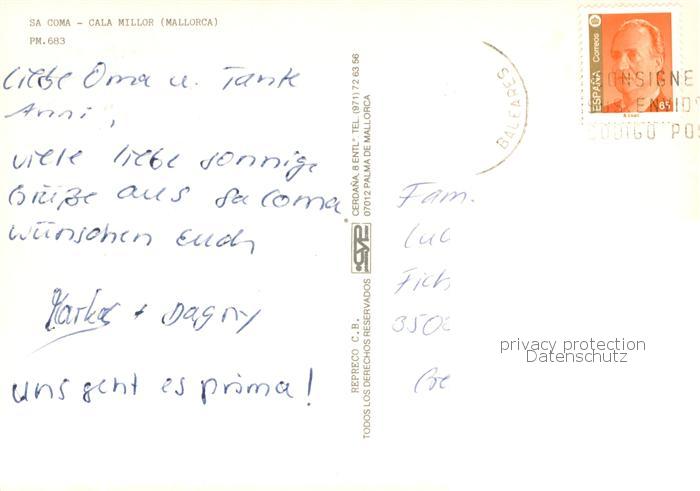 SA COMA - CALA MILLOR (MALLORCA)
PM.683
Liebe Oma u. Tante
Anni,
viele liebe sonnige
Grüße aus Sa Coma
wünschen Euch
Markus + Dagny
uns geht es prima!
REPRECO C.B.
TODOS LOS DERECHOS RESERVADOS
CERDAÑA, 8 ENTLº TEL. (971) 72 63 56
07012 PALMA DE MALLORCA
BALEARES
ESPAÑA Correos
65
CONSIGNE
EN
CODIGO POS
Fam.
Fich
350
privacy protection
Datenschutz